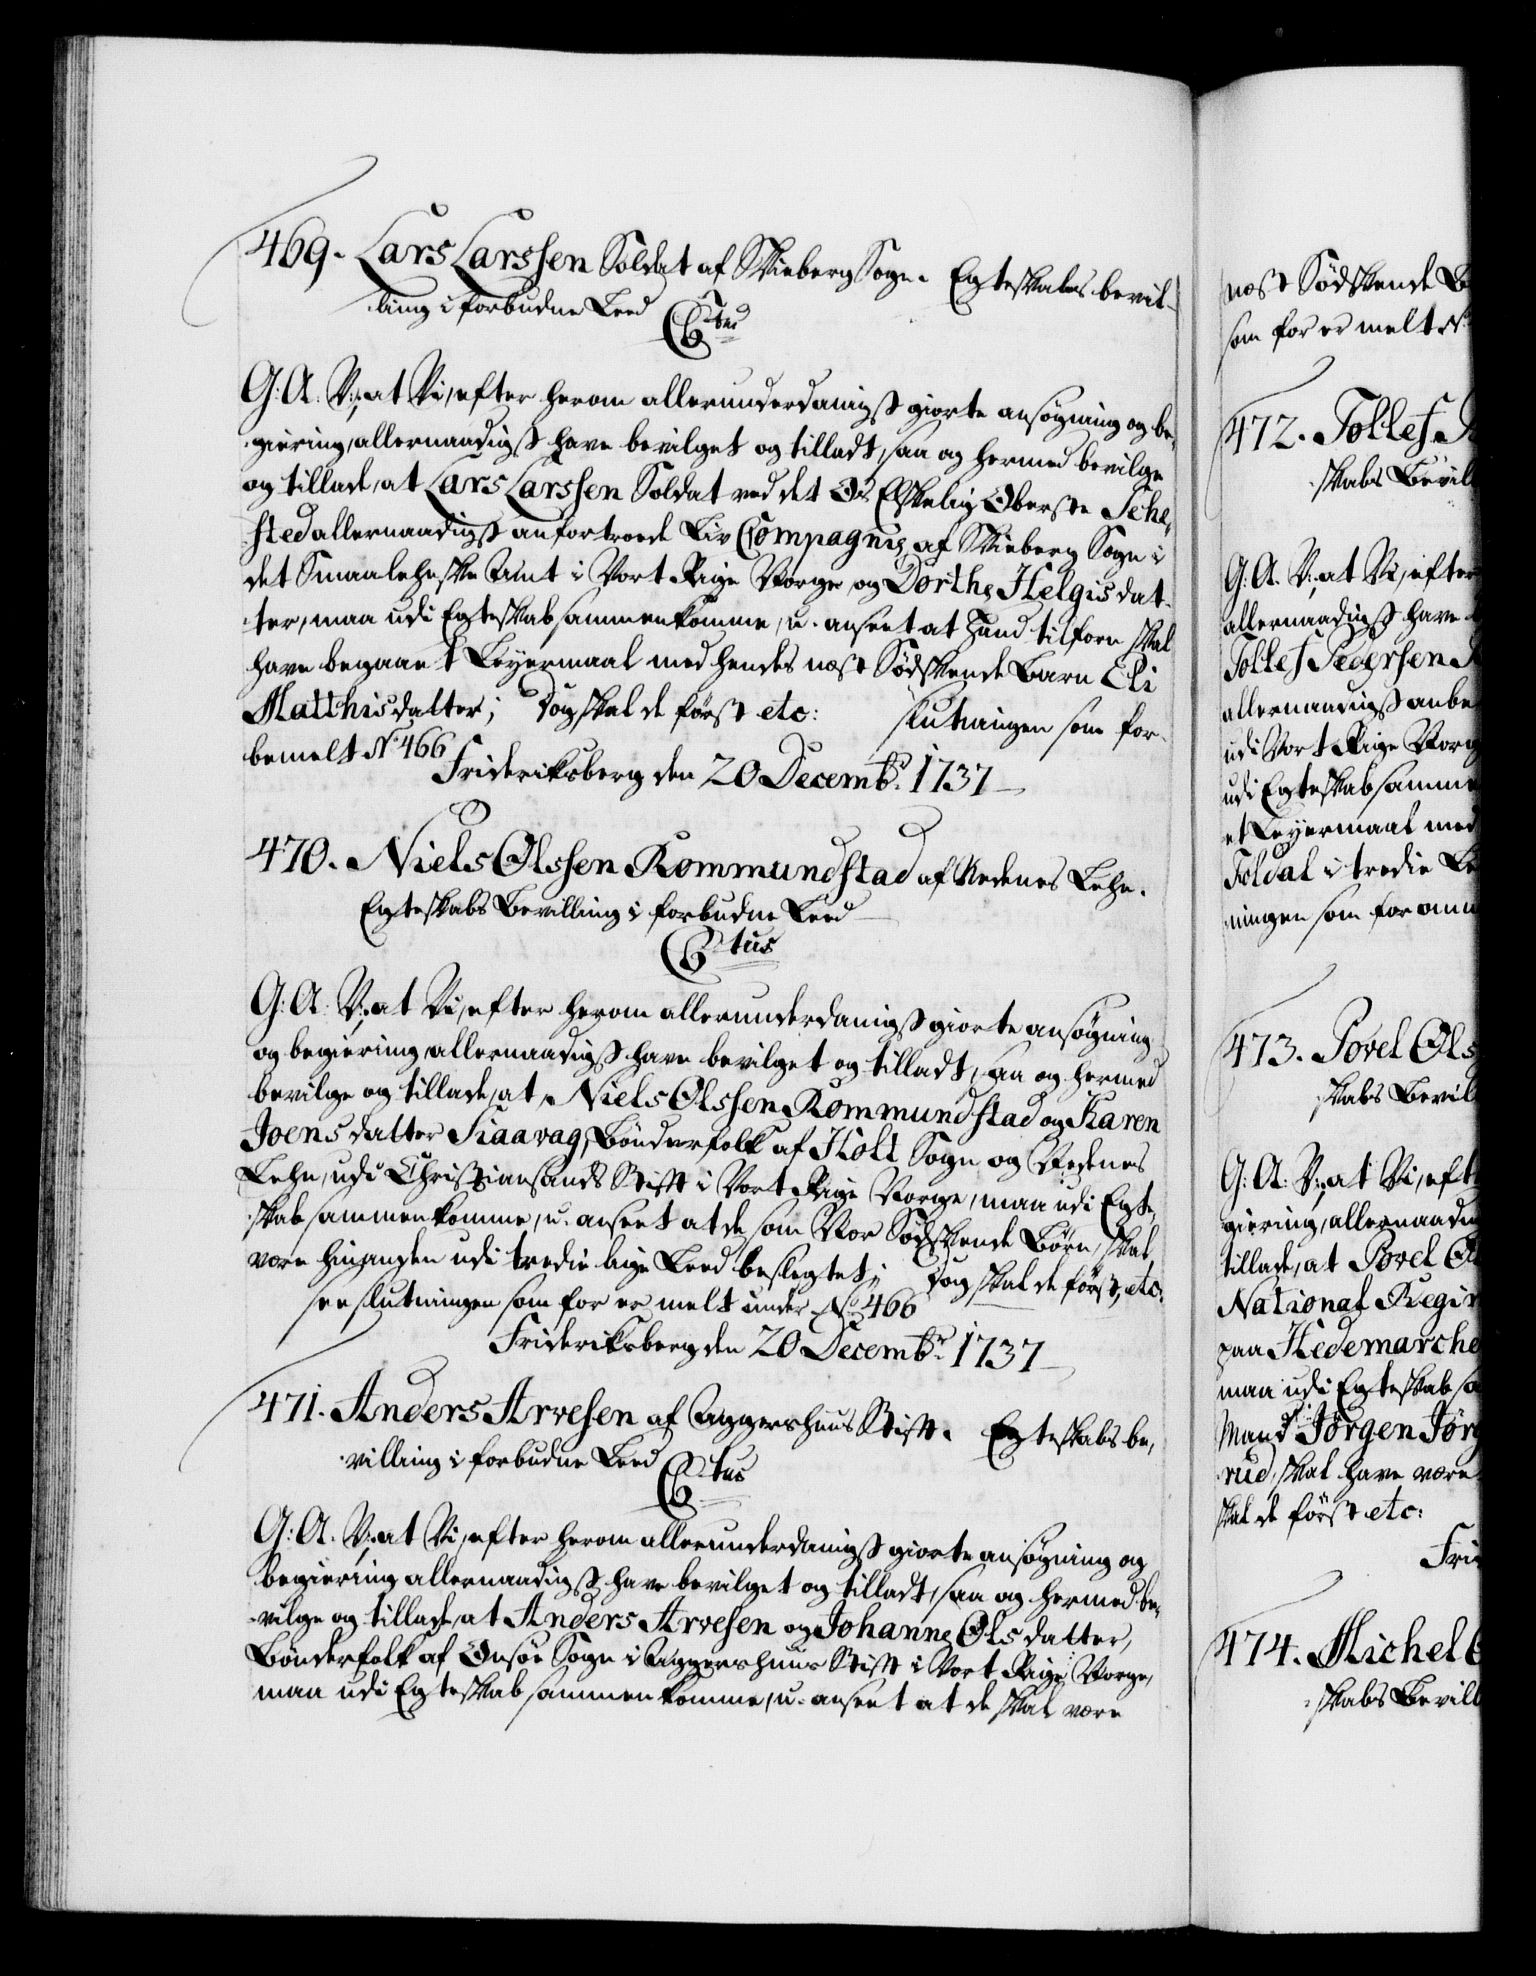 469. Lars Larssen Soldat af Skieberg Sogn. Egteskabs bevil-
ling i forbudne Leed
C6tus
G: A. V:, at Vi, efter herom allerunderdanigst giorte ansøgning og be-
giering, allernaadigst have bevilget og tilladt, saa og hermed bevilge
og tillade, at Lars Larssen Soldat ved det Os Elskelig Oberste Sche-
sted allernaadigst anfortroede Liv Compagnie af Skieberg Sogn i
det Smaalehnske Amt i Vort Rige Norge, og Dorthe Helgisdat-
ter, maa udi Egteskab sammenkomme, u-anseet at hand tilforn skal
have begaaet Leyermaal med hendes næst Södskende Barn Eli
Matthisdatter; Dog skal de først etc: slutningen som for-
bemelt No 466
Frideriksberg den 20 Decembr. 1737
470. Niels Olssen Rommundstad af Nedenes Lehn.
Egteskabs Bevilling i forbudne Leed
C6tus
G: A: V:, at Vi, efter herom allerunderdanigst giorte ansøgning
og begiering allernaadigst have bevilget og tilladt, saa og hermed
bevilge og tillade, at Niels Olssen Rommundstad og Karen
Joensdatter Siaavag, Bønderfolk af Holt Sogn og Nedenes
Lehn, udi Christiansands Stift i Vort Rige Norge, maa udi Egte-
skab sammenkomme, u-anseet at de som Vor Södskende Børn, skal
være hinanden udi tredie lige Leed beslegtet; Dog skal de først, etc:
see slutningen som for er melt under No 466
Frideriksberg den 20 Decembr. 1737
471. Anders Arvesen af Aggershuus Stift. Egteskabs be-
villing i forbudne Leed
C6tus
G: A. V:, at Vi, efter herom allerunderdanigst giorte ansøgning og
begiering allernaadigst have bevilget og tilladt, saa og hermed be-
vilge og tillade, at Anders Arvesen og Johanne Olsdatter,
Bønderfolk af Onsøe Sogn i Aggershuus Stift i Vort Rige Norge,
maa udi Egteskab sammenkomme, u-anseet at de skal være
næst Södskende B
som for er melt No
472. Tollef
skabs Bevil
G: A. V:, at Vi, efter
allernaadigst have
Tollef Pedersen
allernaadigst anbe
udi Vort Rige Norg
udi Egteskab samme
et Leyermaal med
Foldal i tredie Le
ningen som for
473. Povel Ols
skabs Bevil
G: A: V:, at Vi, eft
giering, allernaadi
tillade, at Povel Ol
National Regim
paa Hedemarche
maa udi Egteskab sa
Mand Jørgen Jørg
rud, skal have være
skal de först etc:
Fri
474. Michel
skabs Bevill